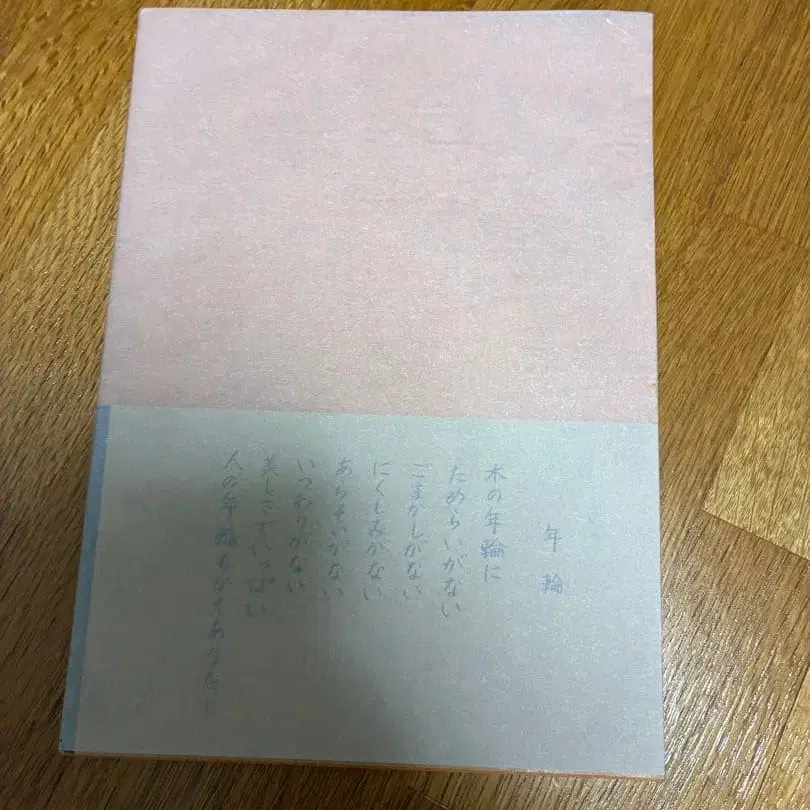 年輪
木の年輪に
ためらいがない
ごまかしがない
にくしみがない
あらそいがない
いつわりがない
美しさがいっぱい
人の年輪も
ありたい